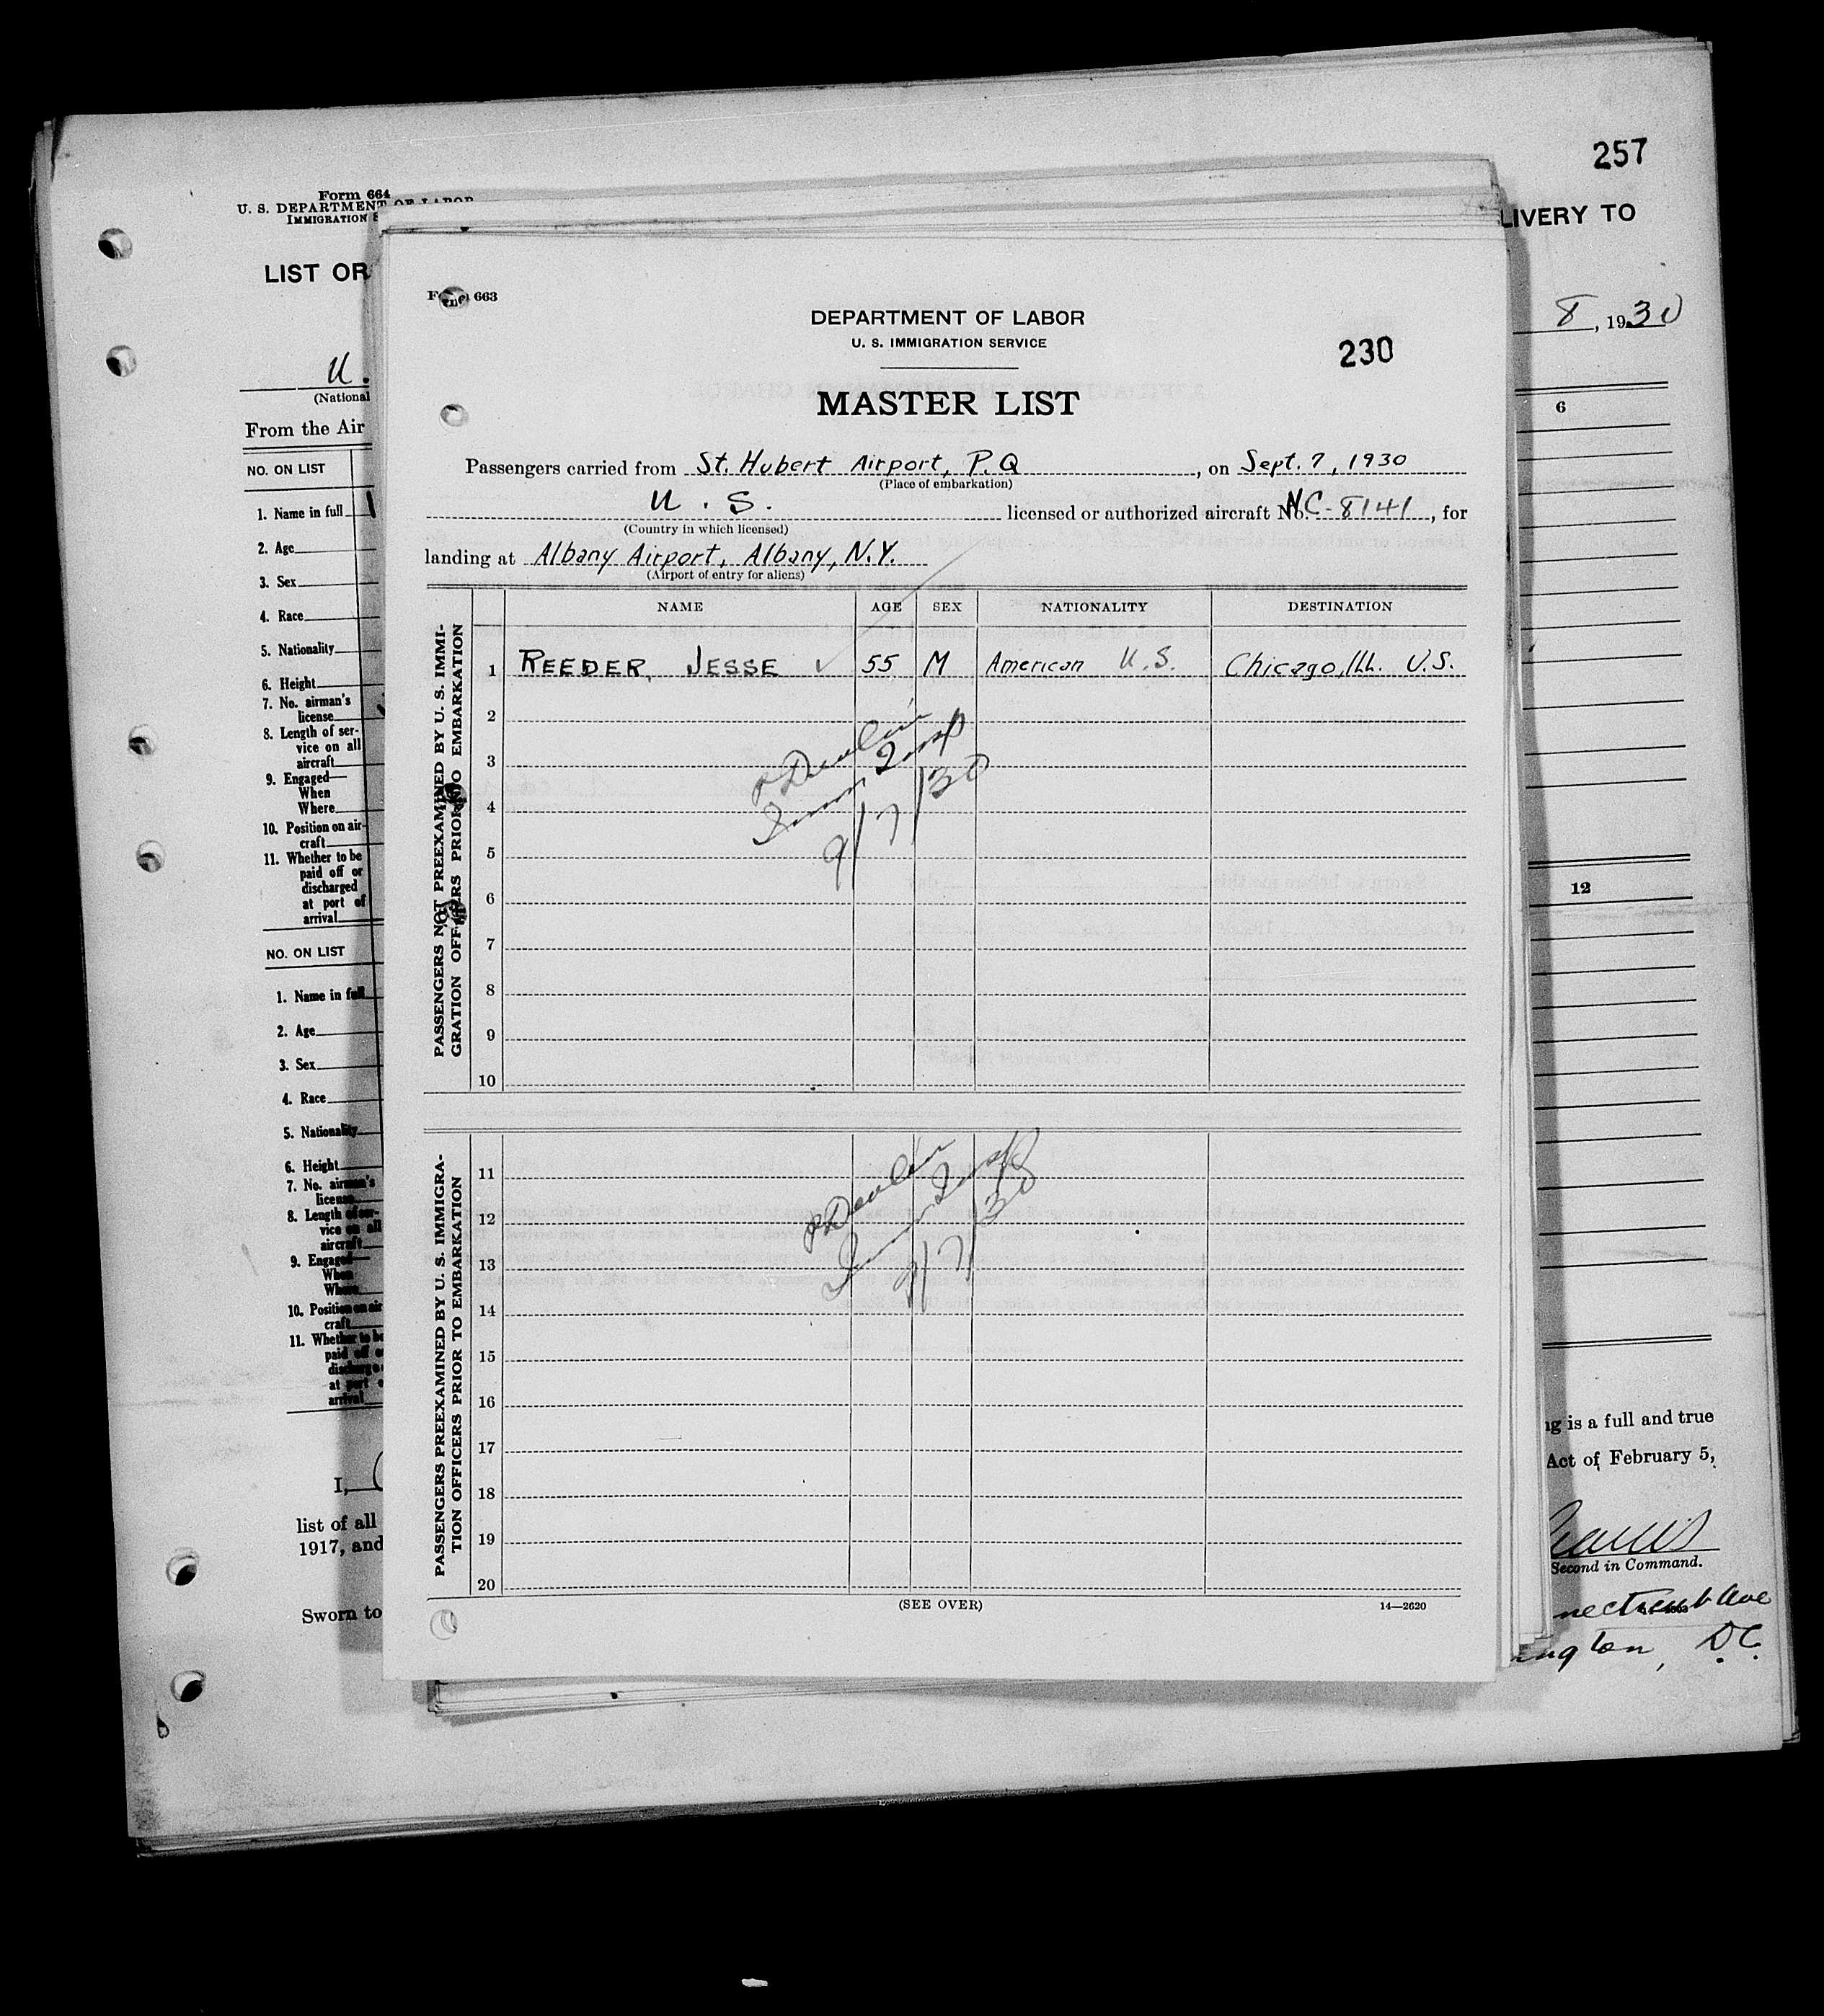 257
Form 664
U. S. DEPARTMENT OF LABOR
IMMIGRATION
LIVERY TO
LIST OR
8, 1930
U.
(National
From the Air
NO. ON LIST
6
1. Name in full
2. Age
3. Sex
4. Race
5. Nationality
6. Height
7. No. airman's
license
8. Length of ser-
vice on all
aircraft
9. Engaged—
When
Where
10. Position on air-
craft
11. Whether to be
paid off or
discharged
at port of
arrival
12
NO. ON LIST
1. Name in full
2. Age
3. Sex
4. Race
5. Nationality
6. Height
7. No. airman's
license
8. Length of ser-
vice on all
aircraft
9. Engaged—
When
Where
10. Position on air
craft
11. Whether to be
paid off o
discharge
at port
arrival
I,
list of all
1917, and
Sworn to
is a full and true
Act of February 5,
Second in Command.
Ave
D.C.
Form 663
DEPARTMENT OF LABOR
U. S. IMMIGRATION SERVICE
230
MASTER LIST
Passengers carried from St. Hubert Airport, P.Q, on Sept. 7, 1930
(Place of embarkation)
U. S. licensed or authorized aircraft No. NC-8141, for
(Country in which licensed)
landing at Albany Airport, Albany, N.Y.
(Airport of entry for aliens)
NAME AGE SEX NATIONALITY DESTINATION
PASSENGERS NOT PREEXAMINED BY U. S. IMMI-
GRATION OFFICERS PRIOR TO EMBARKATION
1 REEDER, JESSE ✓ 55 M American U.S. Chicago, Ill. U.S.
2
3
4
5
6
7
8
9
10
Devlin
Immn Insp
9/7/30
PASSENGERS PREEXAMINED BY U. S. IMMIGRA-
TION OFFICERS PRIOR TO EMBARKATION
11
12
13
14
15
16
17
18
19
20
Devlin
Immn Insp
9/7/30
(SEE OVER)
14—2620